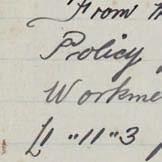 From
Policy
Workme
£1 "11"3